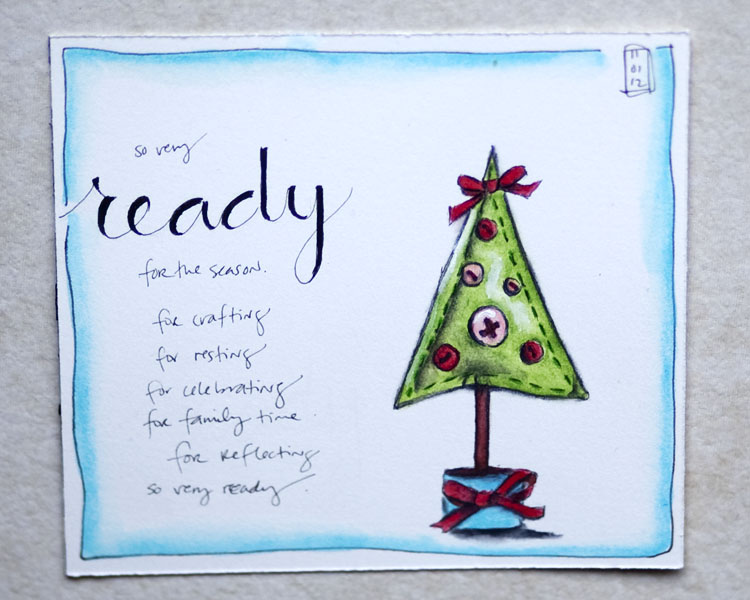 11
01
12
so very
ready
for the season.
for crafting
for resting
for celebrating
for family time.
for reflecting
so very ready.